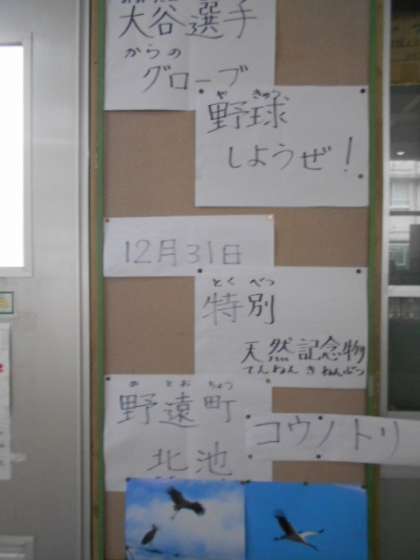 大谷選手
からの
グローブ
や きゅう
野球
しようぜ!
12月31日
とく べつ
特別
天然記念物
てんねん きねんぶつ
の とお ちょう
野遠町
コウノトリ
北池